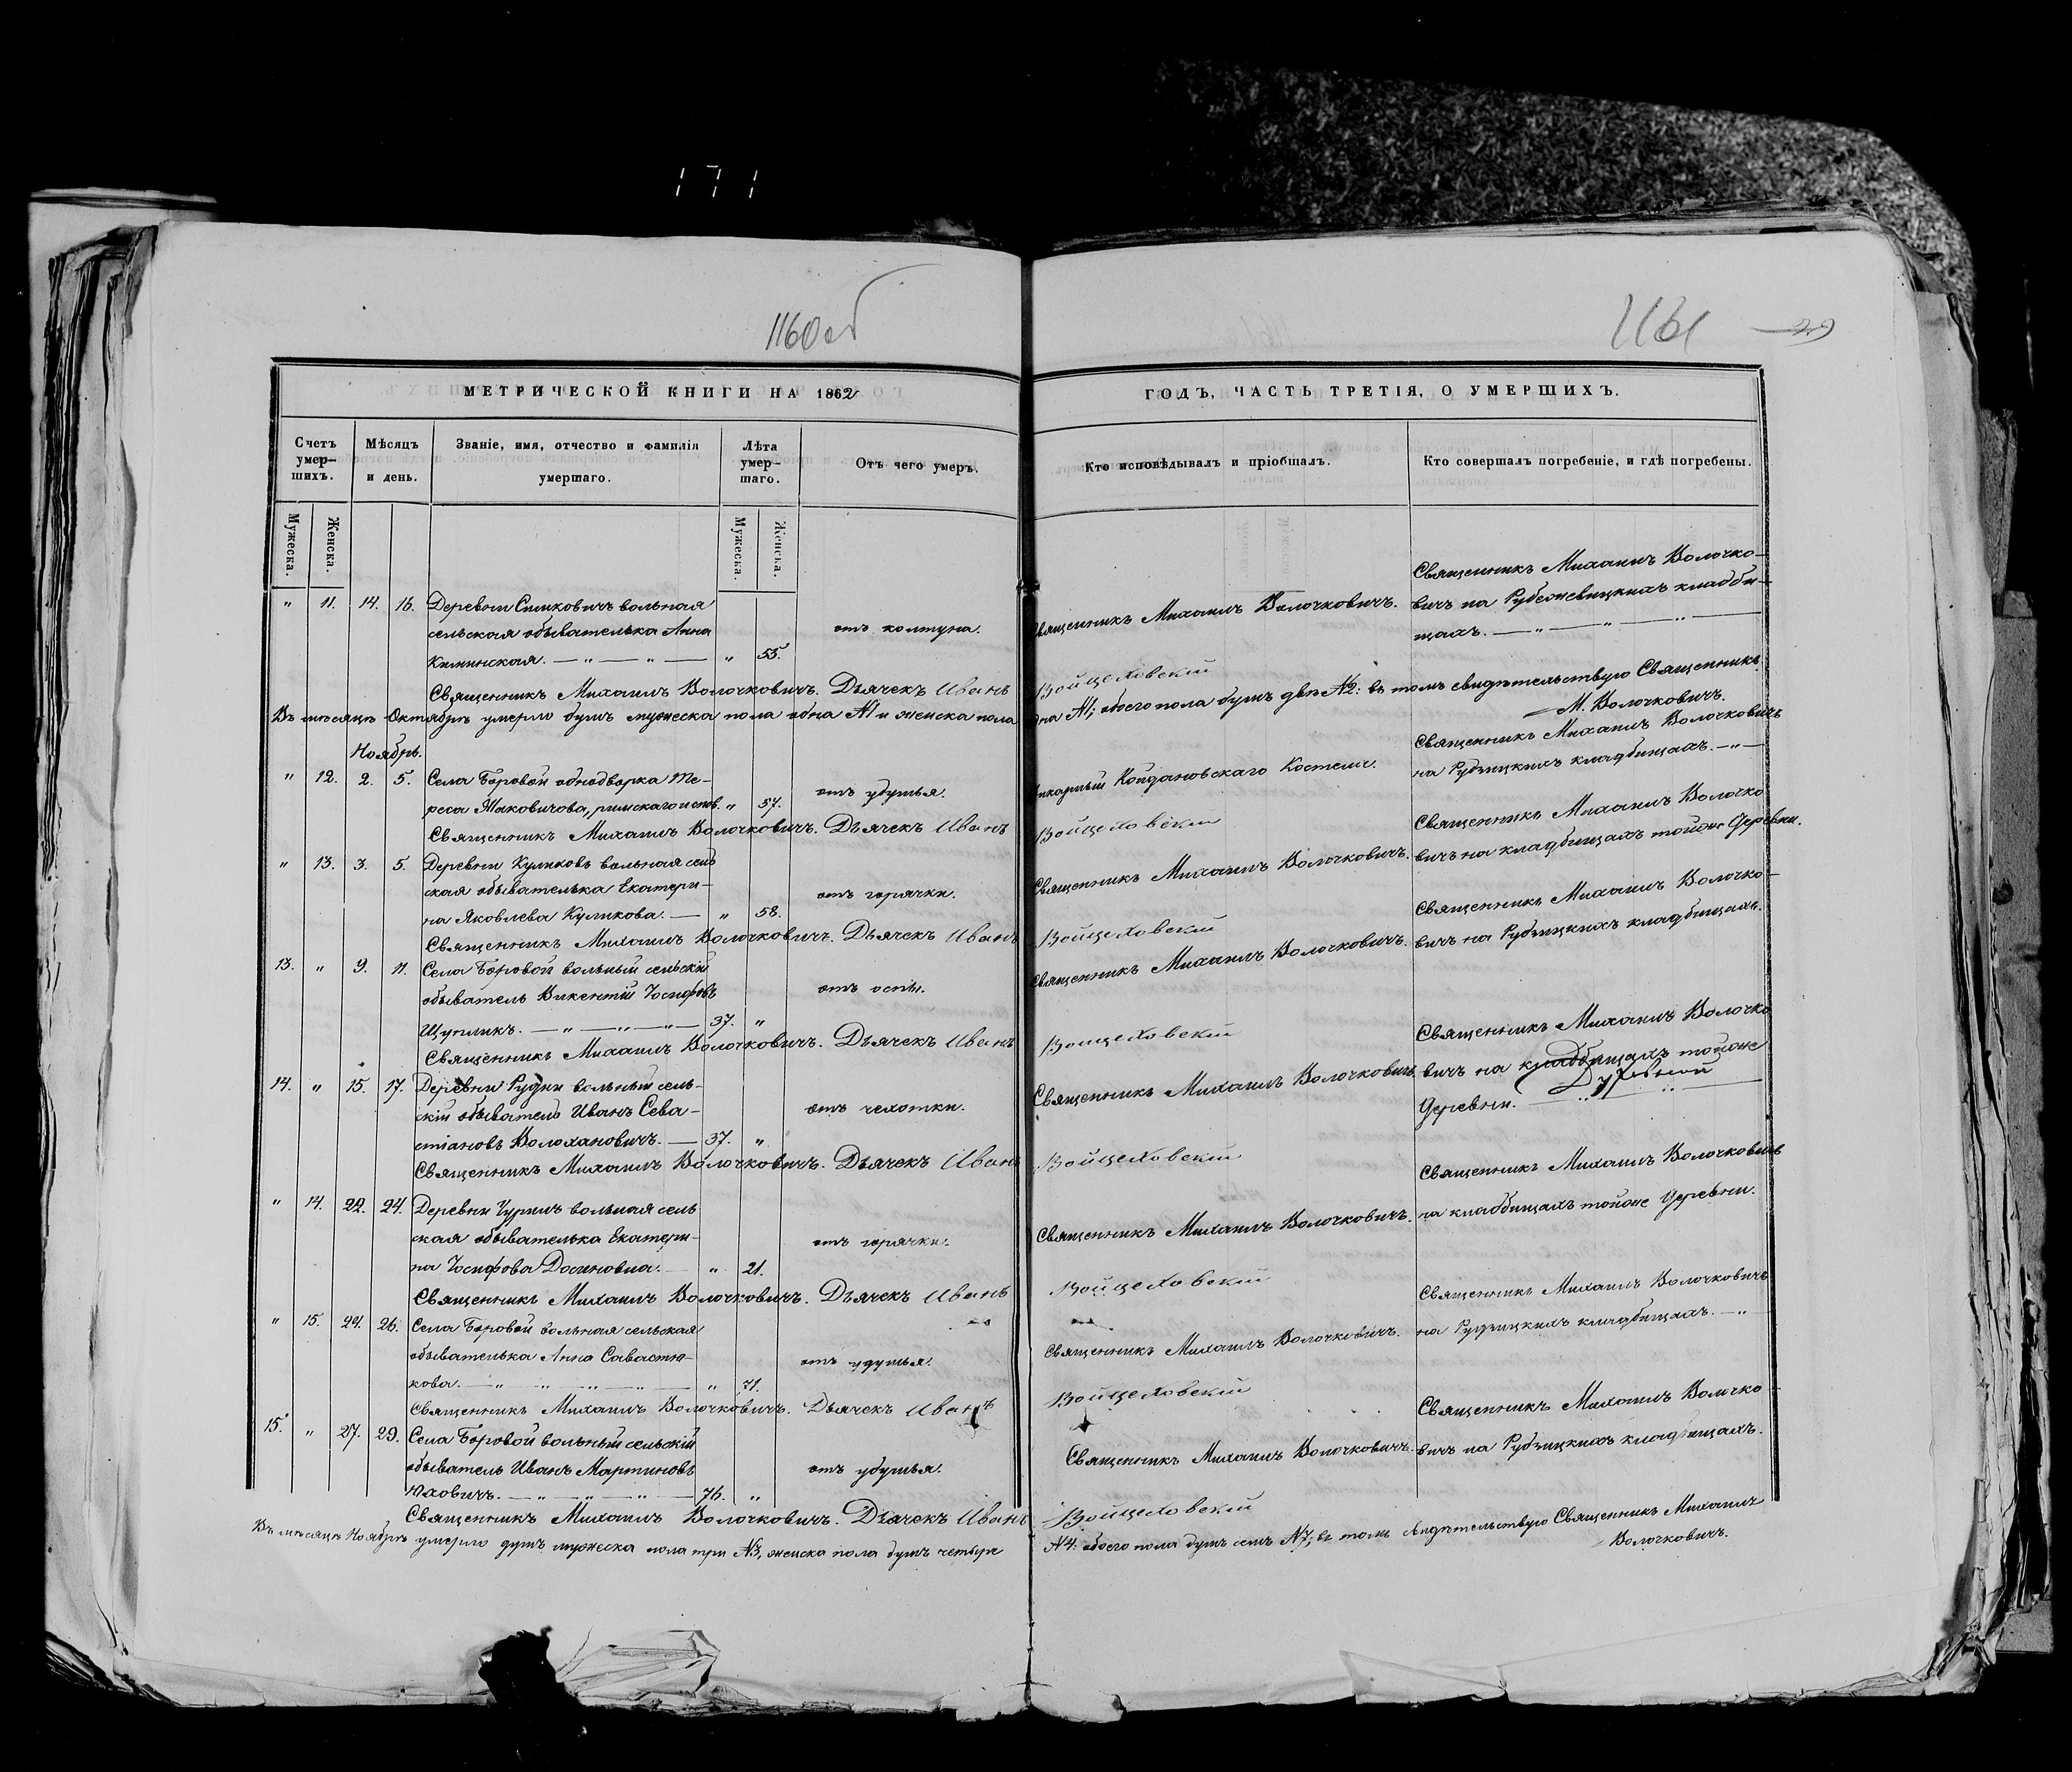 171
1160об
1161
МЕТРИЧЕСКОЙ КНИГИ НА 1862
ГОДЪ, ЧАСТЬ ТРЕТІЯ, О УМЕРШИХЪ.
Счетъ умер-шихъ.
Мѣсяцъ и день.
Званіе, имя, отчество и фамилія умершаго.
Лѣта умер-шаго.
Отъ чего умеръ.
Кто исповѣдывалъ и пріобщалъ.
Кто совершалъ погребеніе, и гдѣ погребены.
Мужеска.
Женска.
Мужеска.
Женска.
" 11. 14. 16. Деревни Симковичъ вольная
сельская обывателька Анна
Киминская. — " — " — " 55.
отъ колтуна.
Священникъ Михаилъ Волочковичъ.
Священникъ Михаилъ Волочко-
вичъ на Рубежевицкихъ кладби-
щахъ. — " — " — " —
Священникъ Михаилъ Волочковичъ. Дьячекъ Иванъ Войцеховскій
Въ мѣсяцѣ Октябрѣ умерло душъ мужеска пола одна №1 и женска пола одна №1; обоего пола душъ двѣ №2: въ томъ свидѣтельствую Священникъ
М. Волочковичъ.
Ноябрь.
" 12. 2. 5. Села Боровой однодворка Те-
реса Маковичова, римскаго испов. " 57.
отъ удушья.
Викарный Койдановскаго Костела.
Священникъ Михаилъ Волочковичъ
на Рудзицкихъ кладбищахъ. — " —
Священникъ Михаилъ Волочковичъ. Дьячекъ Иванъ Войцеховскій
" 13. 3. 5. Деревни Куликовъ вольная сель
ская обывателька Екатери-
на Яковлева Куликова. — " 58.
отъ горячки.
Священникъ Михаилъ Волочковичъ.
Священникъ Михаилъ Волочко
вичъ на кладбищахъ тойже Деревни.
Священникъ Михаилъ Волочковичъ. Дьячекъ Иванъ Войцеховскій
13. " 9. 11. Села Боровой вольный сельскій
обыватель Викентій Іосифовъ
Щупликъ. — " — " — " — 37. "
отъ оспы.
Священникъ Михаилъ Волочковичъ.
Священникъ Михаилъ Волочко-
вичъ на Рудзицкихъ кладбищахъ.
Священникъ Михаилъ Волочковичъ. Дьячекъ Иванъ Войцеховскій
14. " 15. 17. Деревни Рудни вольный сель-
скій обыватель Иванъ Сева-
стіановъ Волоханович. — 37. "
отъ чехотки.
Священникъ Михаилъ Волочковичъ.
Священникъ Михаилъ Волочко
вичъ на кладбищахъ тойже
Деревни.
Священникъ Михаилъ Волочковичъ. Дьячекъ Иванъ Войцеховскій
" 14. 22. 24. Деревни Чуриль вольная сель
ская обывателька Екатери-
на Іосифова Досиновна. — " 21.
отъ горячки.
Священникъ Михаилъ Волочковичъ.
Священникъ Михаилъ Волочковичъ
на кладбищахъ тойже Деревни.
Священникъ Михаилъ Волочковичъ. Дьячекъ Иванъ Войцеховскій
" 15. 24. 26. Села Боровой вольная сельская
обывателька Анна Савастю-
кова. — " — " — " — " — " 71.
отъ удушья.
Священникъ Михаилъ Волочковичъ.
Священникъ Михаилъ Волочковичъ
на Рудзицкихъ кладбищахъ. — "
Священникъ Михаилъ Волочковичъ. Дьячекъ Иванъ Войцеховскій
15. " 27. 29. Села Боровой вольный сельскій
обыватель Иванъ Мартиновъ
Юховичъ. — " — " — " — 76. "
отъ удушья.
Священникъ Михаилъ Волочковичъ.
Священникъ Михаилъ Волочко-
вичъ на Рудзицкихъ кладбищахъ.
Священникъ Михаилъ Волочковичъ. Дьячекъ Иванъ Войцеховскій
Въ мѣсяцѣ Ноябрѣ умерло душъ мужеска пола три №3, женска пола душъ четыре №4: обоего пола душъ семь №7; въ томъ свидѣтельствую Священникъ Михаилъ
Волочковичъ.